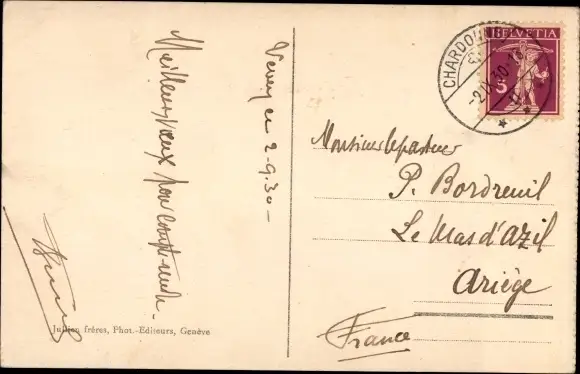 Vevey ce 2-9.30-
Meilleurs vœux pour
Jullien frères, Phot.-Editeurs, Genève
HELVETIA
CHARDO
-2.IX.30
Monsieur le pasteur
P. Bordreuil
Le Mas d'Azil
Ariège
France